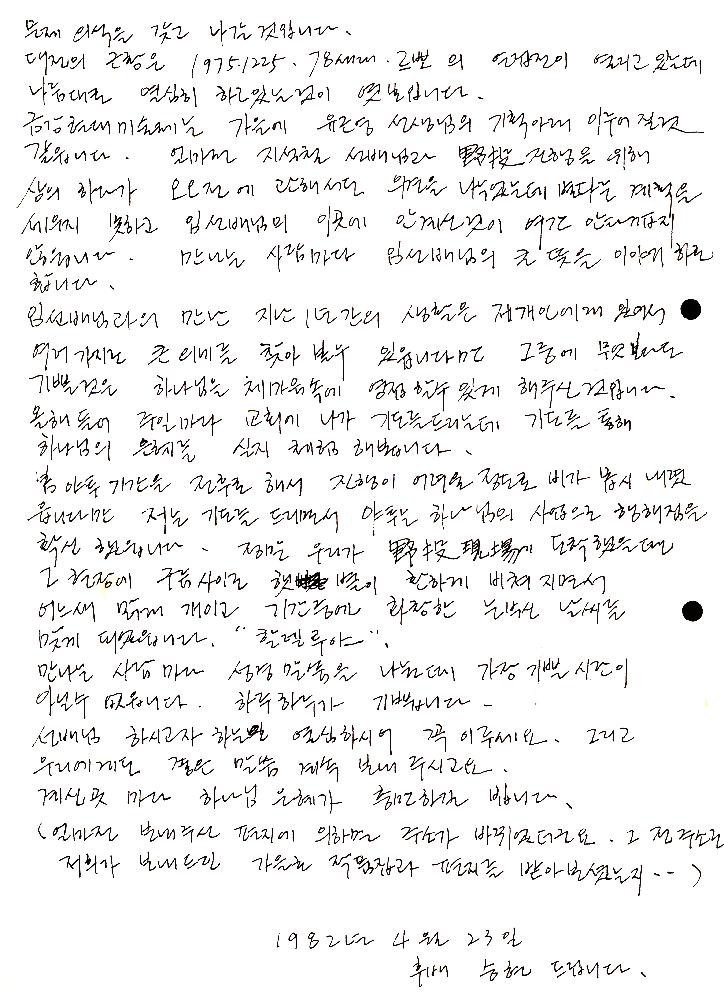 문제 의식을 갖고 나갈 것입니다.
대전의 근황은 19751225. 78세대. 르뽀 의 연합전이 열리고 있는데
나름대로 열심히 하고 있는 것이 엿보입니다.
금강현대미술제는 가을에 유근영 선생님의 기획아래 이루어 질것
같읍니다. 얼마전 지석철 선배님과 野投 진행을 위해
상의 하다가 오오전에 관해서도 의견을 나누었는데 별다른 계획을
세우지 못하고 임선배님의 이곳에 안계신것이 여간 안타깝지
않읍니다. 만나는 사람마다 임선배님의 큰 뜻을 이야기 하곤
합니다.
임선배님과의 만난 지난 1년간의 생활은 저개인에게 있어서
여러가지로 큰 의미를 찾아 볼수 있읍니다만 그중에 무엇보다도
기쁠것은 하나님을 제마음속에 영접할수 있게 해주신 것입니다.
올해 들어 주일마다 교회에 나가 기도를드리는데 기도를 통해
하나님의 은혜를 실지 체험 해봅니다.
봄 야투 기간을 전후로 해서 진행이 어려울 정도로 비가 몹시 내렸
읍니다만 저는 기도를 드리면서 야투는 하나님의 사업으로 행해짐을
확신 했읍니다. 정말 우리가 野投 現場에 도착했을때
그 현장에 구름사이로 햇볕이 환하게 비쳐 지면서
어느새 맑게 개이고 기간중에 화창한 눈부신 날씨를
맞게 되었읍니다. “할렐루야”.
만나는 사람마다 성경 말씀을 나눌때 가장 기쁠 시간이
아닐수 없읍니다. 하루하루가 기쁩니다.
선배님 하시고자 하는일 열심히하시어 꼭 이루세요. 그리고
우리에게도 좋은 말씀 계속 보내 주시고요.
계신곳 마다 하나님 은혜가 충만하길 빕니다.
(얼마전 보내주신 편지에 의하면 주소가 바뀌었더군요. 그 전주소로
저희가 보내드린 가을의 작품집과 편지를 받아보셨는지‥)
1982년 4월 23일
후배 승현 드립니다.